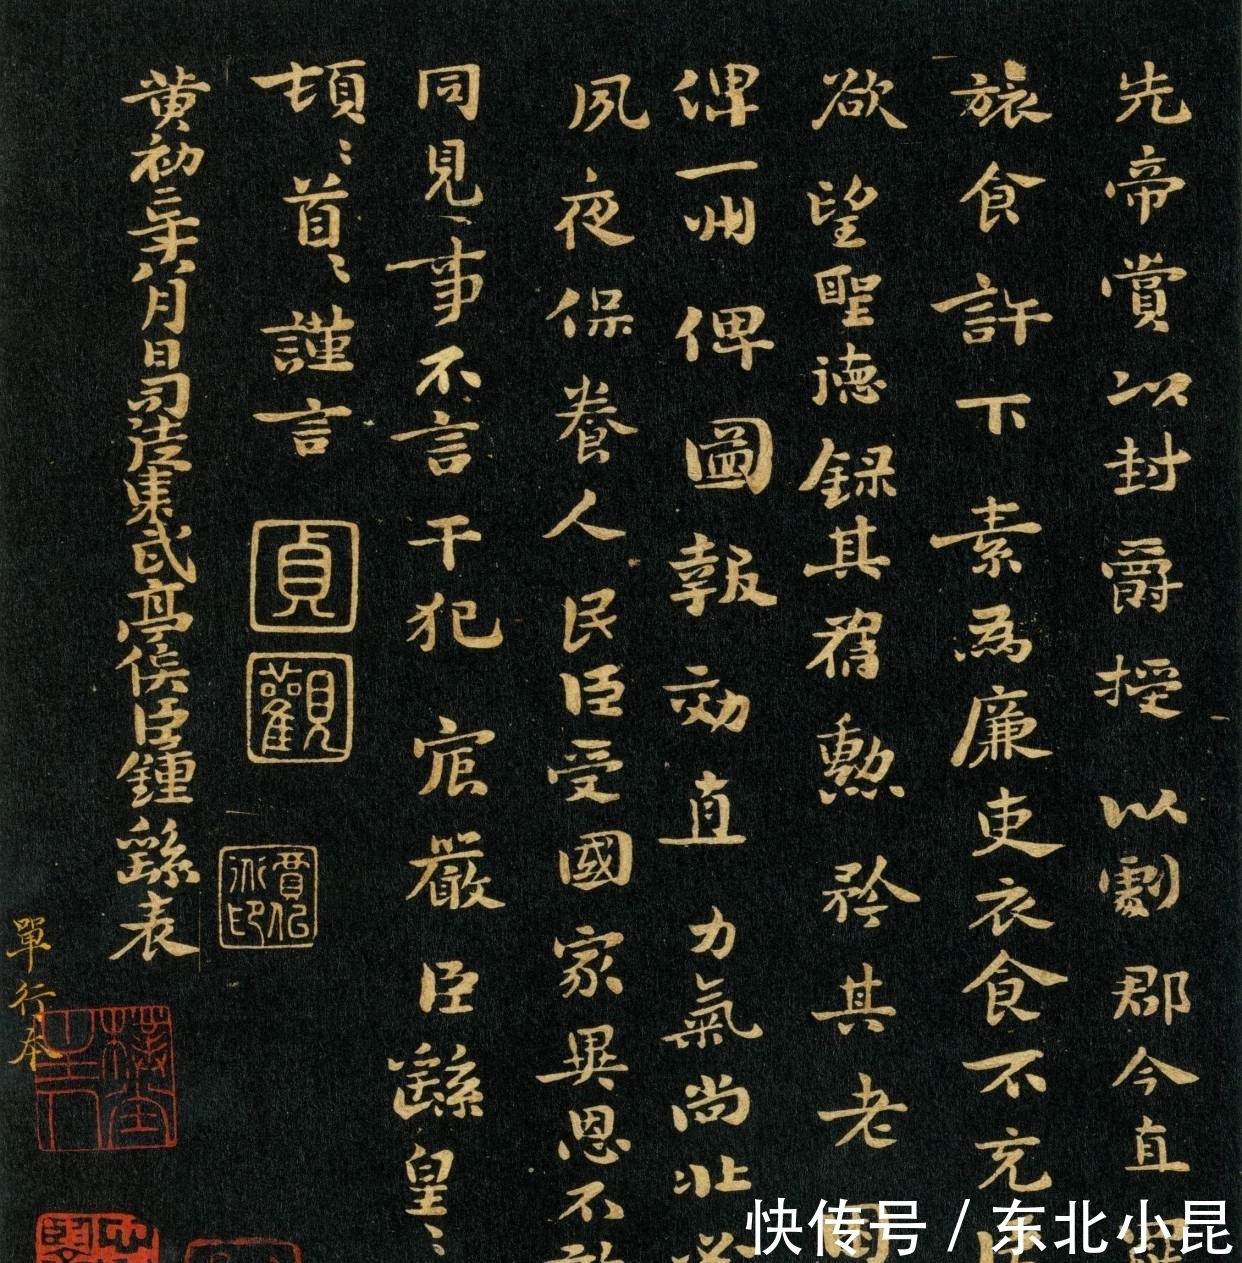 先帝賞以封爵授以劇郡今直
旅食許下素為廉吏衣食不充
欲望聖德錄其舊勳矜其老
俾一州俾圖報効直力氣尚壯
夙夜保養人民臣受國家異恩不敢
同見〻事不言干犯宸嚴臣繇皇〻
頓〻首〻謹言
黃初二年八月日司徒東武亭侯臣鍾繇表
貞
觀
單行本
快传号/东北小昆